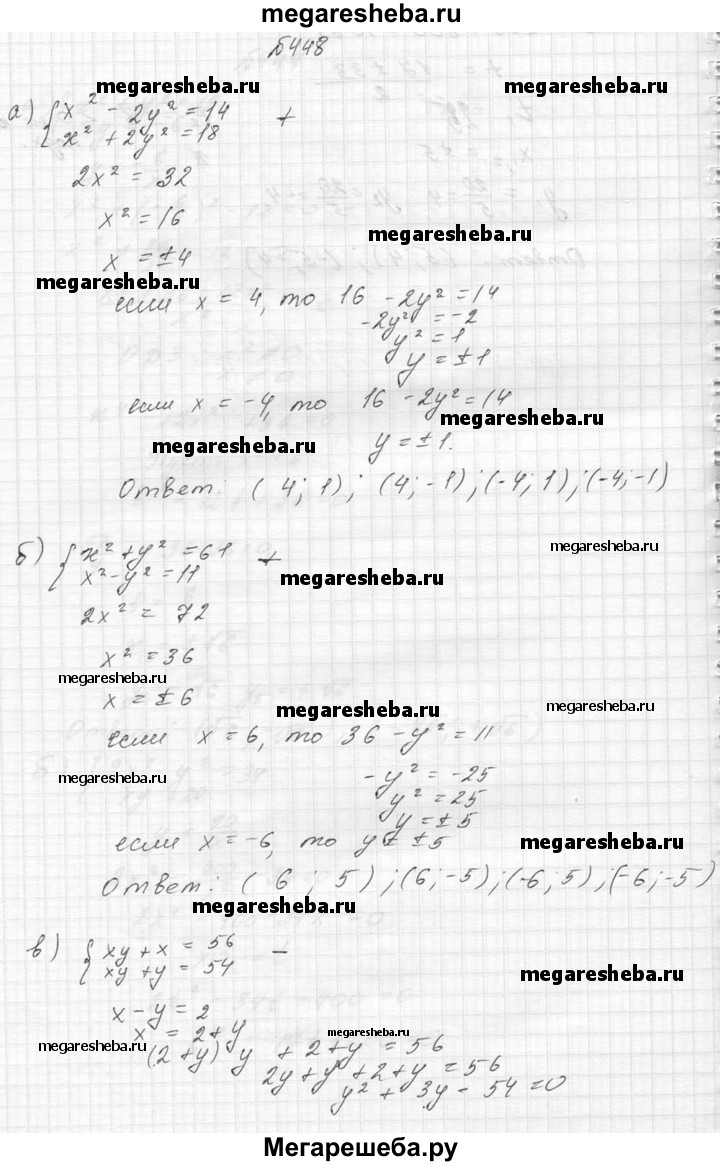 megaresheba.ru
№448
megaresheba.ru megaresheba.ru
а) { x² - 2y² = 14 +
x² + 2y² = 18
2x² = 32
x² = 16
megaresheba.ru
x = ±4
megaresheba.ru
если x = 4, то 16 - 2y² = 14
-2y² = -2
y² = 1
y = ±1
если x = -4, то 16 - 2y² = 14
megaresheba.ru
megaresheba.ru
y = ±1.
Ответ: (4; 1); (4; -1); (-4; 1); (-4; -1)
б) { x² + y² = 61 +
megaresheba.ru
x² - y² = 11
megaresheba.ru
2x² = 72
x² = 36
megaresheba.ru
x = ±6
megaresheba.ru megaresheba.ru
если x = 6, то 36 - y² = 11
megaresheba.ru
-y² = -25
y² = 25
y = ±5
если x = -6, то y = ±5
megaresheba.ru
Ответ: (6; 5); (6; -5); (-6; 5); (-6; -5)
megaresheba.ru
в) { xy + x = 56 -
xy + y = 54
megaresheba.ru
x - y = 2
x = 2 + y
megaresheba.ru
megaresheba.ru megaresheba.ru
(2 + y) y + 2 + y = 56
2y + y² + 2 + y = 56
y² + 3y - 54 = 0
Мегарешеба.ру